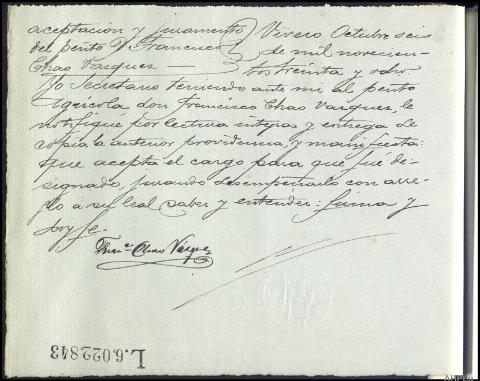 aceptacion y juramento
del perito D Francisco
Chao Vasquez
Vivero Octubre seis
de mil novecien-
tos treinta y ocho
Yo Secretario teniendo ante mi al perito
agricola don Francisco Chao Vasquez le
notifiqué por lectura integra y entrega de
copia la anterior providencia, y manifiesta:
Que acepta el cargo para que fue de-
signado, jurando desempeñarlo con arre-
glo a su leal saber y entender: firma y
doy fe.
Franco Chao Vasquez
L.6.022.843